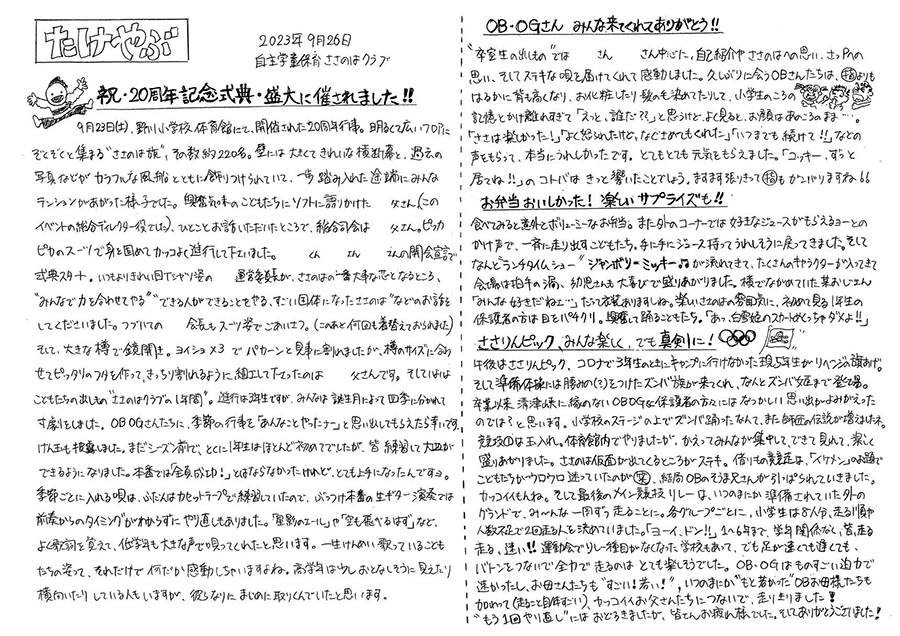 たけやぶ
2023年9月26日
自主学童保育 ささのはクラブ
祝・20周年記念式典・盛大に催されました!!
9月23日(土)、野川小学校体育館にて、開催された20周年行事。明るくて広いフロアに
ぞくぞくと集まる"ささのは族"、その数約220名。壁には大きくてきれいな横断幕と、過去の
写真などがカラフルな風船とともに飾りつけられていて、一歩踏み入れた途端にみんな
テンションがあがった様子でした。興奮気味のこどもたちにソフトに語りかけた 父さん(この
イベントの総合ディレクター役でした)、ひとことお話いただいたところで、総合司会は 父さん。ピカ
ピカのスーツで身を固めてカッコよく進行して下さいました。 くん さん さんの開会宣言で
式典スタート。いつもよりきれい目でシャツ姿の 運営委員長が、ささのはの一番大事な芯となるところ、
"みんなで力を合わせてやる""できる人ができることをやる、すごい団体になったささのは"などのお話を
してくださいました。つづいての 会長もスーツ姿でごあいさつ。(このあと何回も着替えておられました)
そして、大きな樽で鏡開き。ヨイショ×3 でパカーンと見事に割れましたが、樽のサイズに合わ
せてピッタリのフタを作って、きっちり割れるように、細工して下さったのは 父さんです。そしていよいよ
こどもたちの出しもの"ささのはクラブの1年間"。進行は3年生が、みんなは誕生月によって四季に分かれて
寸劇をしました。OBOGさんたちに、季節の行事を「あんなことやったナー」と思い出してもらえたら幸いです。
けん玉も披露しました。まだシーズン前で、とくに1年生はほとんど初めてでしたが、皆練習して大皿が
できるようになりました。本番では「全員成功!」とはならなかったけれど、とても上手になったんですヨ。
季節ごとに入れる唄は、ふだんはカセットテープで練習していたので、ぶっつけ本番の生ギター演奏では
前奏からのタイミングがわからずにやり直しもありました。「星影のエール」や「空も飛べるはず」など、
よく歌詞を覚えて、低学年も大きな声で唄ってくれたと思います。一生けんめい歌っているこども
たちの姿って、それだけで何だか感動しちゃいますよね。高学年は少しおとなしそうに見えたり
横向いたりしている人もいますが、彼らなりにまじめに取りくんでいたと思います。
OB・OGさん みんな来てくれてありがとう!!
"卒室生の出しもの"では さん さん中心に、自己紹介やささのはへの思い、さっPへの
思い、そしてステキな唄を届けてくれて感動しました。久しぶりに会うOBさんたちは、指よりも
はるかに背も高くなり、お化粧したり髪の毛も染めてたりして、小学生のころの
記憶とかけ離れすぎて「えっと、誰だ??」と思うけど、よく見ると、お顔はあのころのまま…。
「ささは楽しかった!」「よく怒られたけど、なぐさめてもくれた」「いつまでも続けて!!」などの
声をもらって、本当にうれしかったです。とてもとても元気をもらえました。「コッキー、ずっと
居てね!!」のコトバはきっと響いたことでしょう。ますます張りきって指もがんばりますね
お弁当おいしかった! 楽しいサプライズも!!
食べてみると意外とボリューミーなお弁当。また外のコーナーでは好きなジュースがもらえるヨーとの
かけ声で、一斉に走り出すこどもたち。手に手にジュース持ってうれしそうに戻ってきました。そして
なんと"ランチタイムショー"ジャンボリーミッキー♫が流れてきて、たくさんのキャラクターが入ってきて
会場は拍手の渦、幼児さんも大喜びで盛りあがりました。横でながめていた某おじさん
「みんな好きだねェ…」たって衣装ありますしね。楽しいささのはの雰囲気に、初めて見る1年生の
保護者の方は目をパチクリ。興奮して踊るこどもたち。「あっ、白雪姫のスカートめくっちゃダメよ!!」
ささりんピック、みんな楽しく、でも真剣に!
午後はささりんピック、コロナで3年生のときにキャンプに行けなかった現5年生がリベンジの旗あげ。
そして準備体操には勝めの(?)をつけたズンバ族が来てくれ、なんとズンバ女王まで登場。
卒業以来清津峡に縁のないOBOG&保護者の方々にはなつかしい思い出がよみがえった
のではと思います。小学校のステージの上でズンバ踊ったなんて、また師匠の伝説が増えましたネ。
競技①は玉入れ。体育館内でやりましたが、かえってみんなが集中してできて見れて、楽しく
盛りあがりました。ささのは仮面が出てくるところがステキ。借りもの競走は、「イケメン」のお題で
こどもたちがウロウロ迷っていたのが 、結局OBのそう兄さんが引っぱられていきました。
カッコイイもんね。そして最後のメイン競技リレーは、いつのまにか準備されていた外の
グランドで、みーんな一周ずつ走ることに。各グループごとに、小学生は8人分、走る順や
人数不足で2回走る人を決めていました。「ヨーイ、ドン!!」1〜6年まで、学年関係なく、皆、走る
走る、速い!! 運動会でリレー種目がなくなった学校もあって、でも足が速くても遅くても、
バトンをつないで全力で走るのはとても楽しそうでした。OB・OGはものすごい迫力で
速かったし、お母さんたちも"すごい!若い!"、いつのまにか"もと若かった"OBお母様たちも
加わって(走ること自体すごい)、カッコイイお父さんたちにつないで、走り走りました!
"もう1回やり直し"にはおどろきましたが、皆さんお疲れ様でした。そしてありがとうございました!